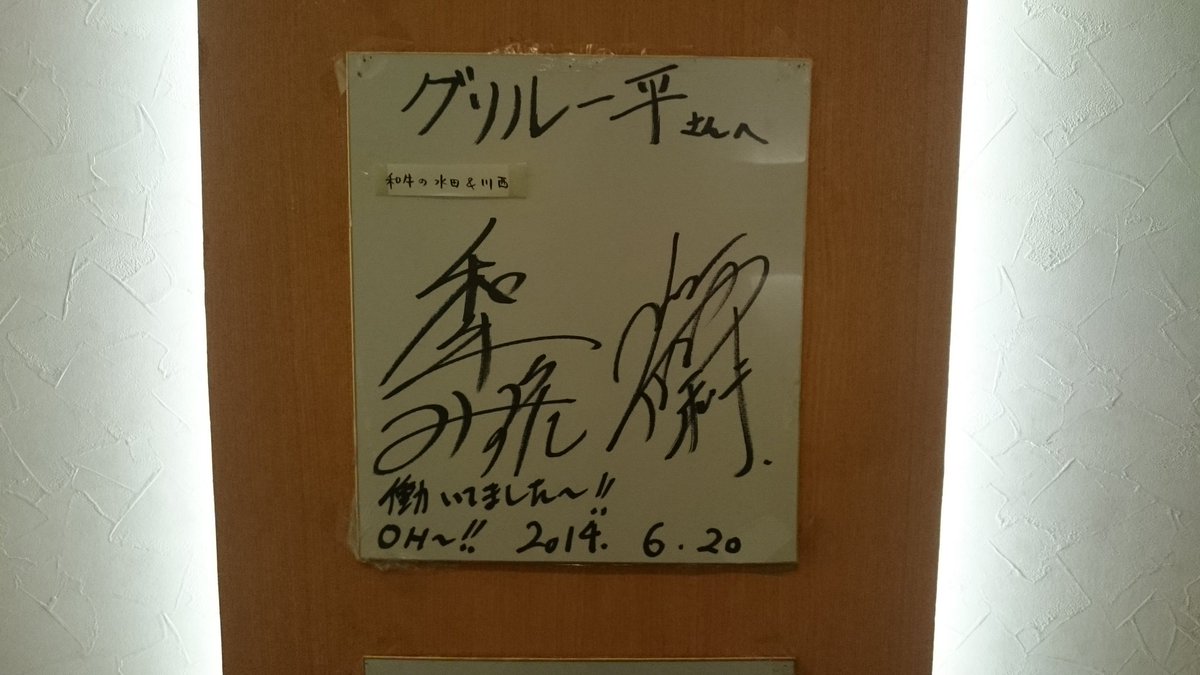 グリル一平さんへ
和牛の水田&川西
和牛
働いてました〜!!
OH〜!! 2014. 6. 20